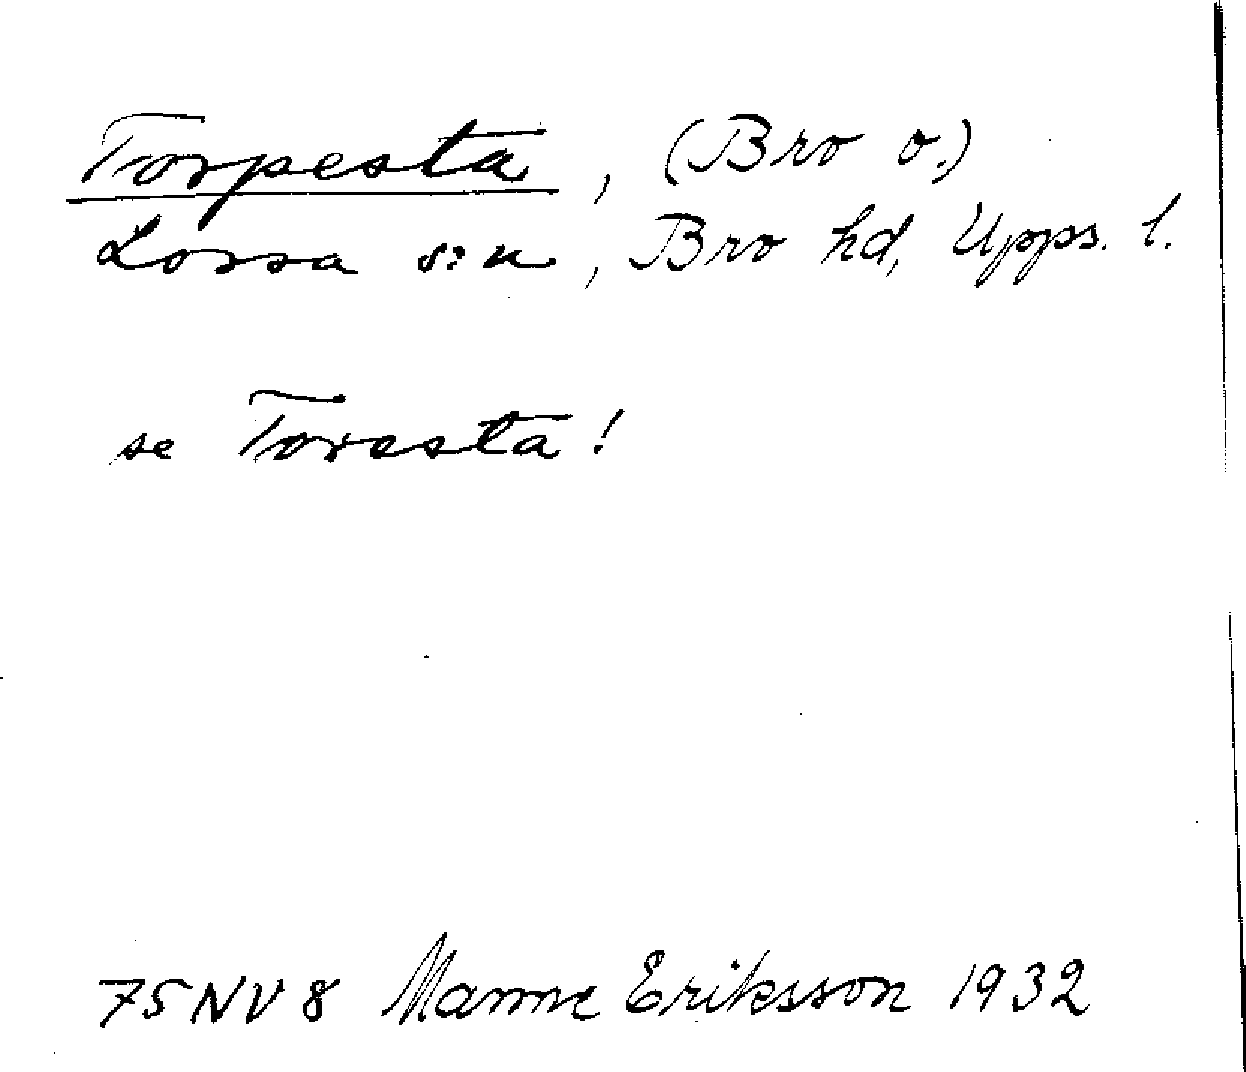 Torpesta, (Bro o.)
Lossa s:n, Bro hd, Upps. l.
se Toresta!
75NV8 Manne Eriksson 1932